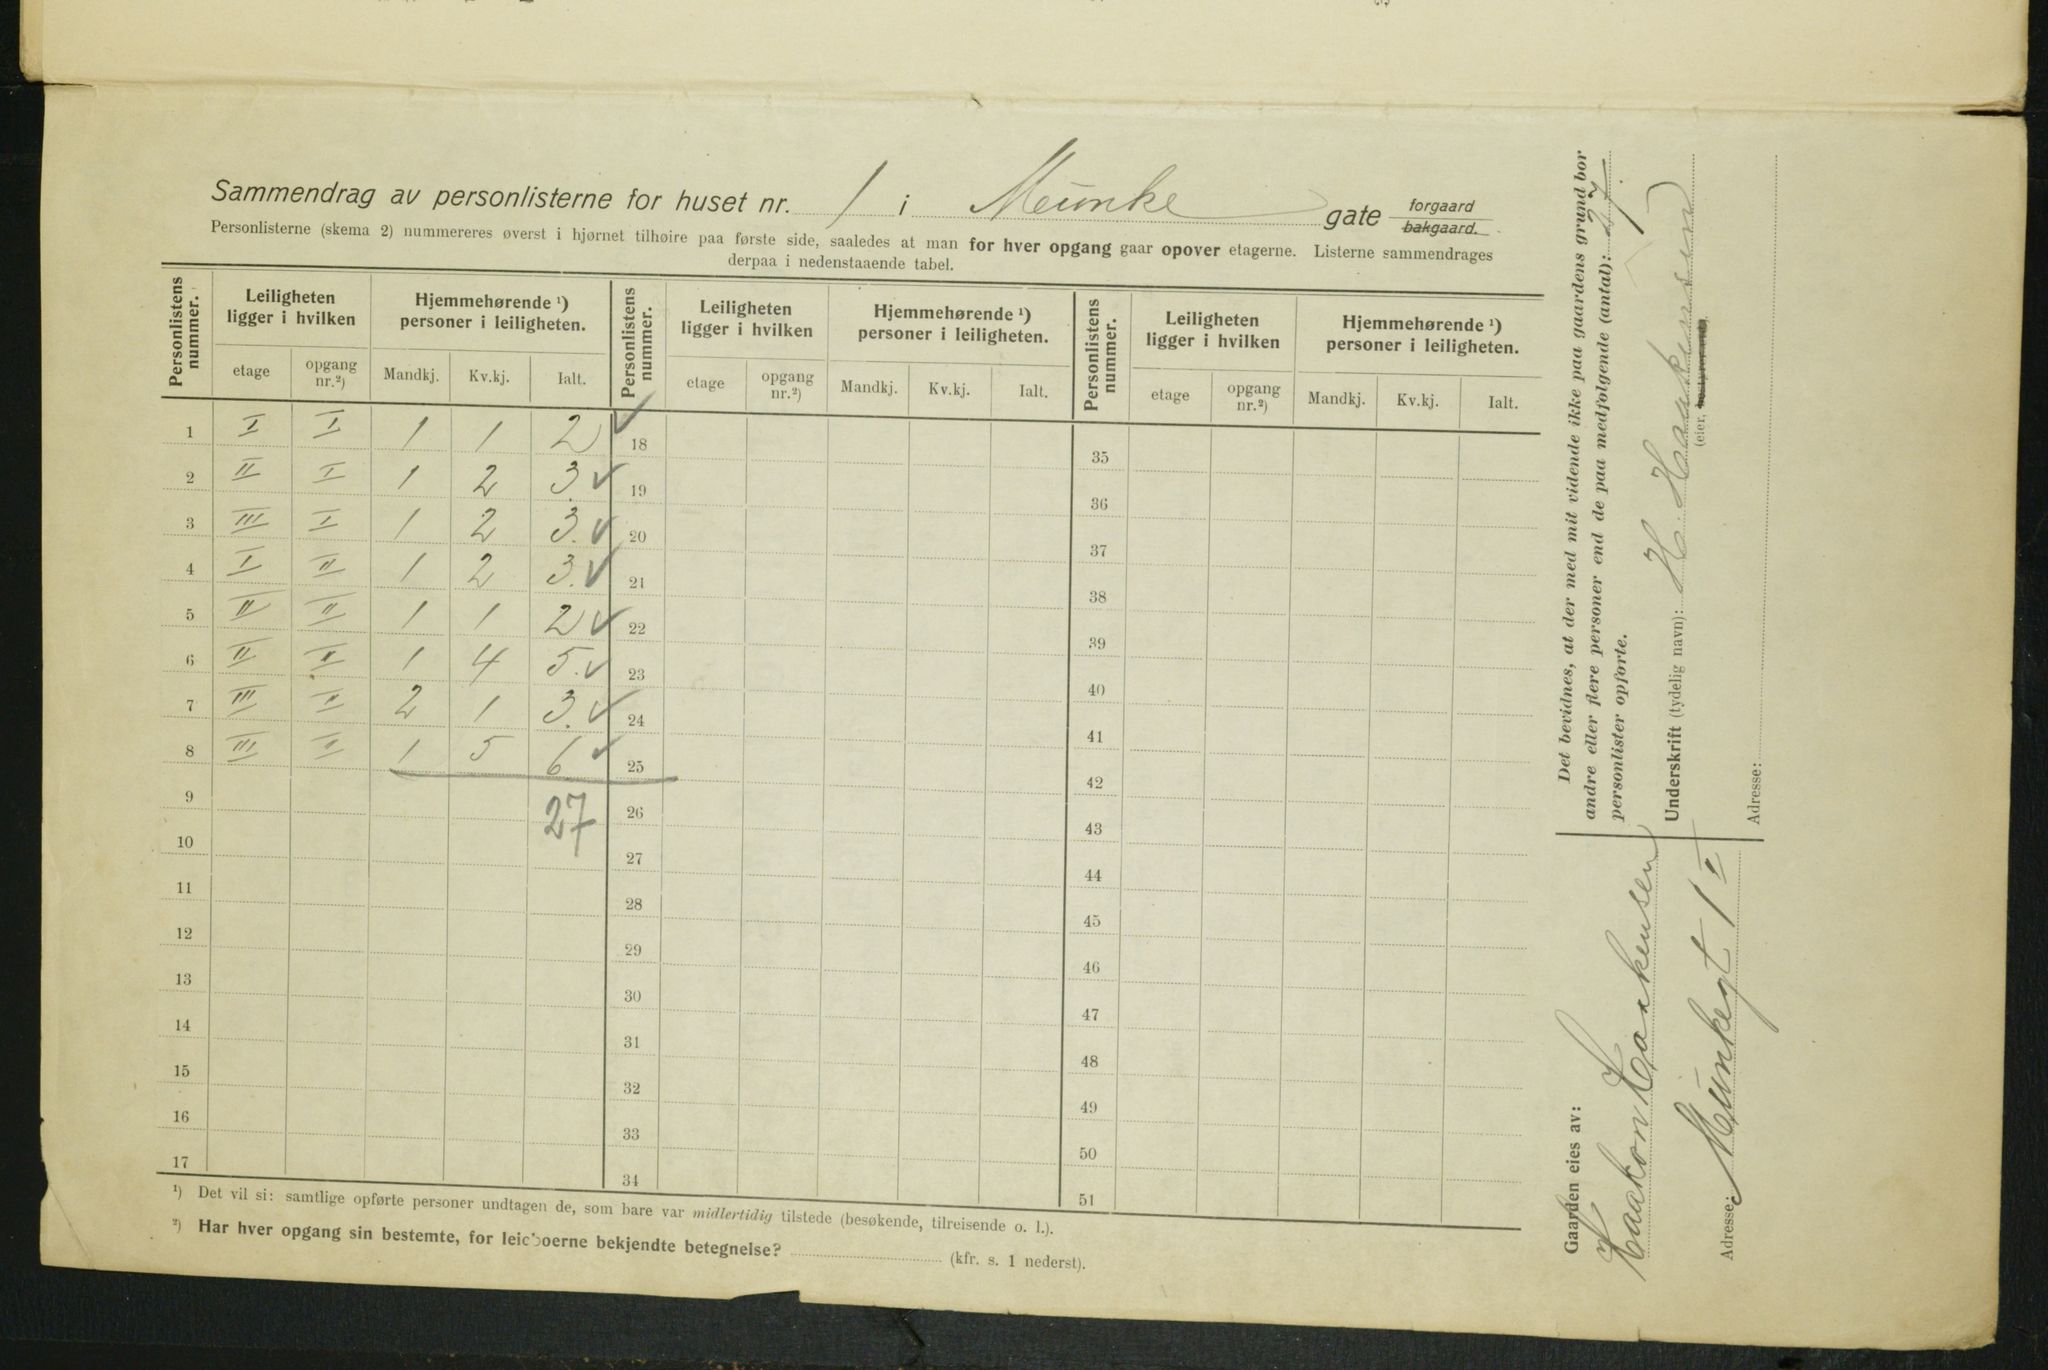 Sammendrag av personlisterne for huset nr. 1 i Munke gate forgaard bakgaard.
Personlisterne (skema 2) nummereres øverst i hjørnet tilhøire paa første side, saaledes at man for hver opgang gaar opover etagerne. Listerne sammendrages
derpaa i nedenstaaende tabel.
Personlistens nummer. Leiligheten ligger i hvilken Hjemmehørende ¹) personer i leiligheten. Personlistens nummer. Leiligheten ligger i hvilken Hjemmehørende ¹) personer i leiligheten. Personlistens nummer. Leiligheten ligger i hvilken Hjemmehørende ¹) personer i leiligheten.
etage opgang nr.²) Mandkj. Kv.kj. Ialt. etage opgang nr.²) Mandkj. Kv.kj. Ialt. etage opgang nr.²) Mandkj. Kv.kj. Ialt.
1 I I 1 1 2 ✓ 18 35
2 II I 1 2 3. ✓ 19 36
3 III I 1 2 3. ✓ 20 37
4 I II 1 2 3. ✓ 21 38
5 II II 1 1 2 ✓ 22 39
6 II II 1 4 5. ✓ 23 40
7 III II 2 1 3. ✓ 24 41
8 III II 1 5 6 ✓ 25 42
9 27 26 43
10 27 44
11 28 45
12 29 46
13 30 47
14 31 48
15 32 49
16 33 50
17 34 51
¹) Det vil si: samtlige opførte personer undtagen de, som bare var midlertidig tilstede (besøkende, tilreisende o. l.).
²) Har hver opgang sin bestemte, for leieboerne bekjendte betegnelse? (kfr. s. 1 nederst).
Det bevidnes, at der med mit vidende ikke paa gaardens grund bor
andre eller flere personer end de paa medfølgende (antal): 27
personlister opførte.
Underskrift (tydelig navn): H. Haakensen
(eier,
Adresse:
Gaarden eies av:
Haakon Haakensen
Adresse: Munkegt 1 I